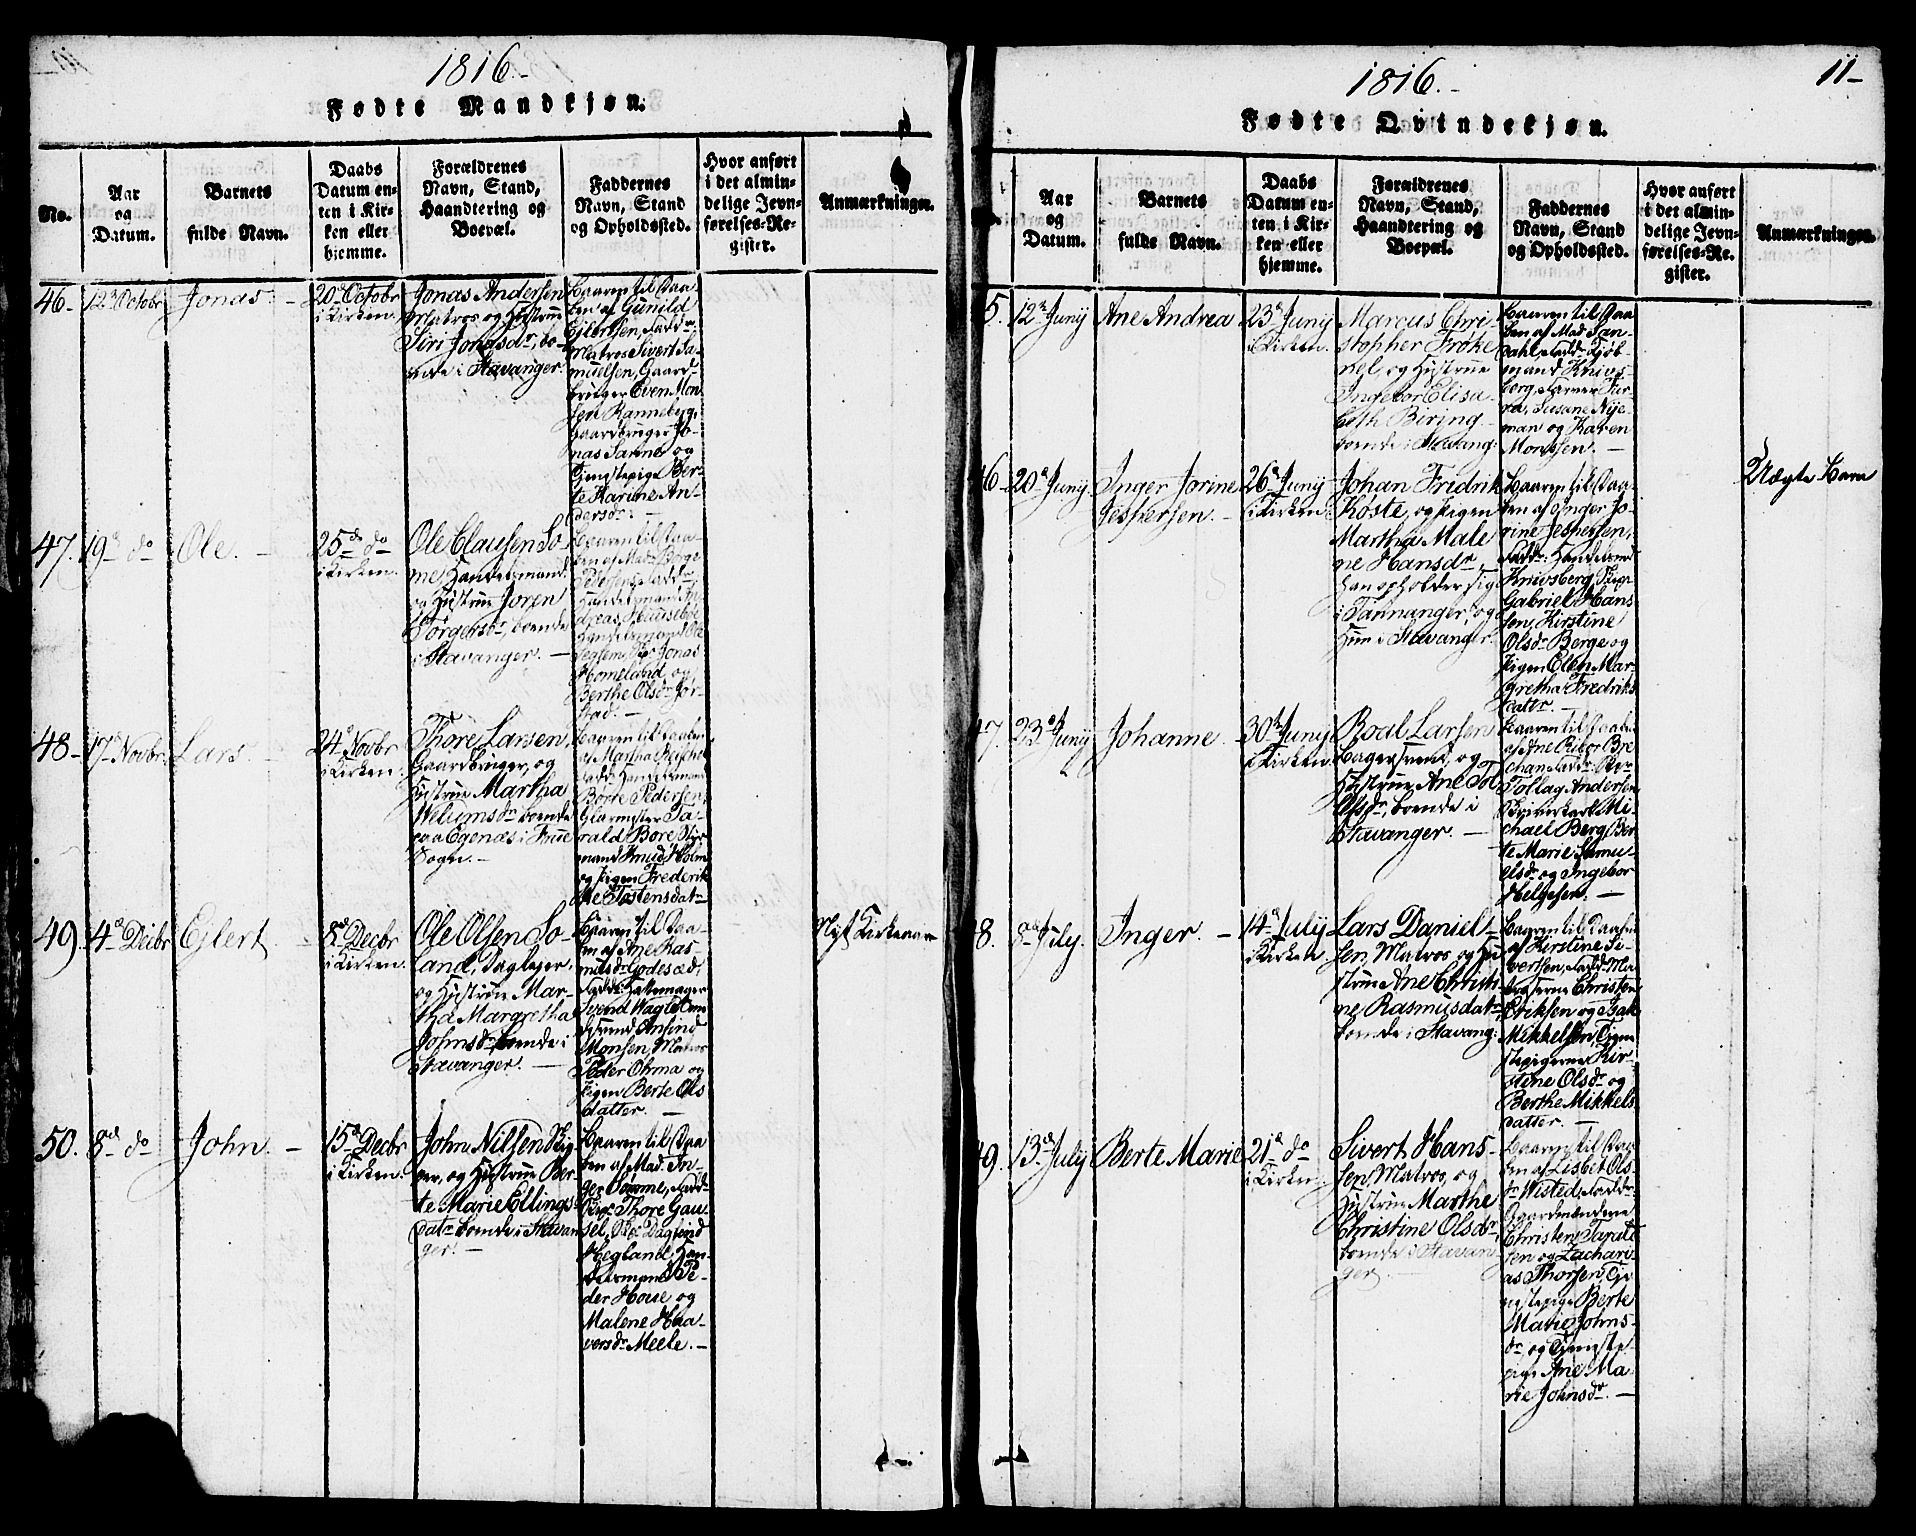 1816.-
Fødte Mandkjøn.
No.
Aar
og
Datum.
Barnets
fulde Navn.
Daabs
Datum en-
ten i Kir-
ken eller
hjemme.
Forældrenes
Navn, Stand,
Haandtering og
Boepæl.
Faddernes
Navn, Stand
og Opholdssted.
Hvor anført
i det almin-
delige Jevn-
førelses-Re-
gister.
Anmærkninger.
46-
12te Octobr
Jonas. -
20de Octobr
i Kirken.
Jonas Andersen
Matros og Hustrue
Siri Jonasdr, bo-
ende i Stavanger.
Baaren til Daa-
ben af Gunild
Ejlertsen, Faddr
Matros Sivert Sa-
muelsen, Gaard-
bruger Even Mon
sen Ranneberg,
Gaardbruger Jo-
nas Sanne og
Tjenstepige Ber-
te Karine An-
dersdr. -
47.
19de do
Ole. -
25de do
i Kirken.
Ole Clausen So-
me Handelsmand
og Hustrue Joren
Børgersdr, boende
i Stavanger. -
Baaren til Daa-
ben af Mad. Børge
Pedersen, Faddr,
Handelsmand
Handelsmand Ole
Jonas
Homeland og
Berthe Olsdr Jør-
stad. -
48-
17de Novbr
Lars. -
24de Novbr
i Kirken.
Thore Larsen,
Gaardbruger, og
Hustrue Martha
Wilumsdr, boende
paa Egenæs i Frue
Sogn. -
Baaren til Daaben
af Martha
Fadd. Handelsmand
Børre Pedersen,
Glarmester Ta-
rald Bore Styr
mand Knud Holm
og Pigen Frederik
ke Tostensdatr
49.
4de Decbr
Ejlert -
8de Decbr
i Kirken.
Ole Olsen So-
land, Daglejer,
og Hustrue Mar-
tha Margretha
Johnsdr, boende i
Stavanger. -
Baaren til Daa-
ben af Ane Ras-
musdr Godesæd,
Fadd: Hattemager
Svend Wagle
svend Ansind
Monsen, Matros
Peder Ohma og
Pigen Berte Ols
datter. -
Nyt Kirkeaar
50.
8de do
John. -
15de Decbr
i Kirken.
John Nilsen Sky
er, og Hustrue Ber-
te Marie Ellings-
datr boende i Stavan
ger. -
Baaren til Daa
ben af Mad. In-
ger Somme, Fadd-
Thore Gau-
sel, Dagfind
Hegland, Han-
delsmand Pe-
der Houe og
Malene Haa-
versdr Meele. -
1816.-
11-
Fødte Qvindekjøn.
Aar
og
Datum.
Barnets
fulde Navn.
Daabs
Datum en-
ten i Kir-
ken eller
hjemme.
Forældrenes
Navn, Stand,
Haandtering og
Boepæl.
Faddernes
Navn, Stand
og Opholdssted.
Hvor anført
i det almin-
delige Jevn-
førelses-Re-
gister.
Anmærkninger.
5.
12te Junij
Ane Andrea
23de Junij
i Kirken.
Marcus Chri-
stopher Frøke
og Hustrue
Ingebor Elisa-
beth Biring
boende i Stavang:
Baaren til Daa
ben af Mad San-
dahl, Faddr Kjøb-
mand Knivs-
berg,
Susane Nye-
man og Karen
Montsen. -
46-
20de Junij
Inger Jorine
Jespersen. -
26de Junij
i Kirken.
Johan Fredrik
Koste, og Pigen
Martha Male
ne Hansdr,
han opholder sig
i Tannanger, og
Hun i Stavanger.
Baaren til Daa-
ben af Inger Jo-
rine Jespersen,
Fadd. Handelsmd
Knivsberg,
Gabriel Hans
sen, Kirstine
Olsdr Berge og
Pigen Elen Mar-
gretha Fredriks
datr. -
Uægte Barn
47.
23de Junij
Johanne. -
30te Junij
i Kirken.
Roal Larsen
Bagersvend, og
Hustrue Ane
Olsdr, boende i
Stavanger. -
Baaren til Daaben
af Ane
Faddr.
Tollag Andersen
Mi-
chael Berg Ber-
te Marie Samu-
elsdr og Ingebor
Helgesen. -
48.
8de July.
Inger. -
14de July
i Kirken
Lars Daniel-
sen, Matros og Hu
strue Ane Christi-
ne Rasmusdatr,
boende i Stavang:
Baaren til Daaben
af Kirstine Si-
vertsen, Fadd. Ma-
troserne Christen
Eriksen og Isak
Mikkelsen, Tjen
stepigerne Kir-
stine Olsdr og
Berthe Mikkels
datter. -
49.
13de July
Berte Marie
21de do
i Kirken.
Sivert Hans-
sen, Matros, og
Hustrue Marthe
Christine Olsdr,
boende i Stavan-
ger. -
Baaren til Daa-
ben af Lisbet Ols
dr Wisted, Faddr.
Gaardmændene
Christen
sen og Zachari
as Thorsen, Tje
nestepige Berte
Marie Johns-
dr, og Tjeneste-
pige Ane Ma-
rie Johnsdr. -